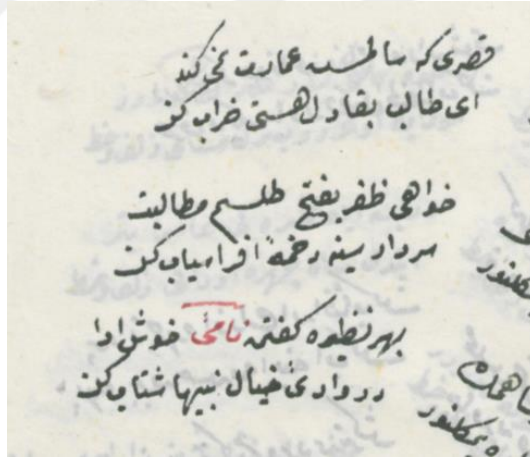 قصری که سالمست عمارت نمی‌کند
ای طالب بقا دل هستی خراب کن
خواهی ظفر بفتح طلسم مطالبت
سردار سینه زخمهٔ افراسیاب کن
بهر نظیره گفتن نامیٔ خوش ادا
در وادیٔ خیال نبیها شتاب کن